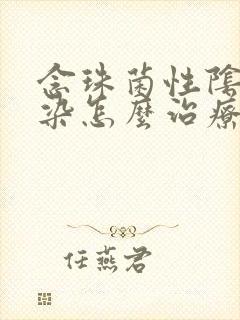 念珠菌性陰
染怎麼治療
任燕君